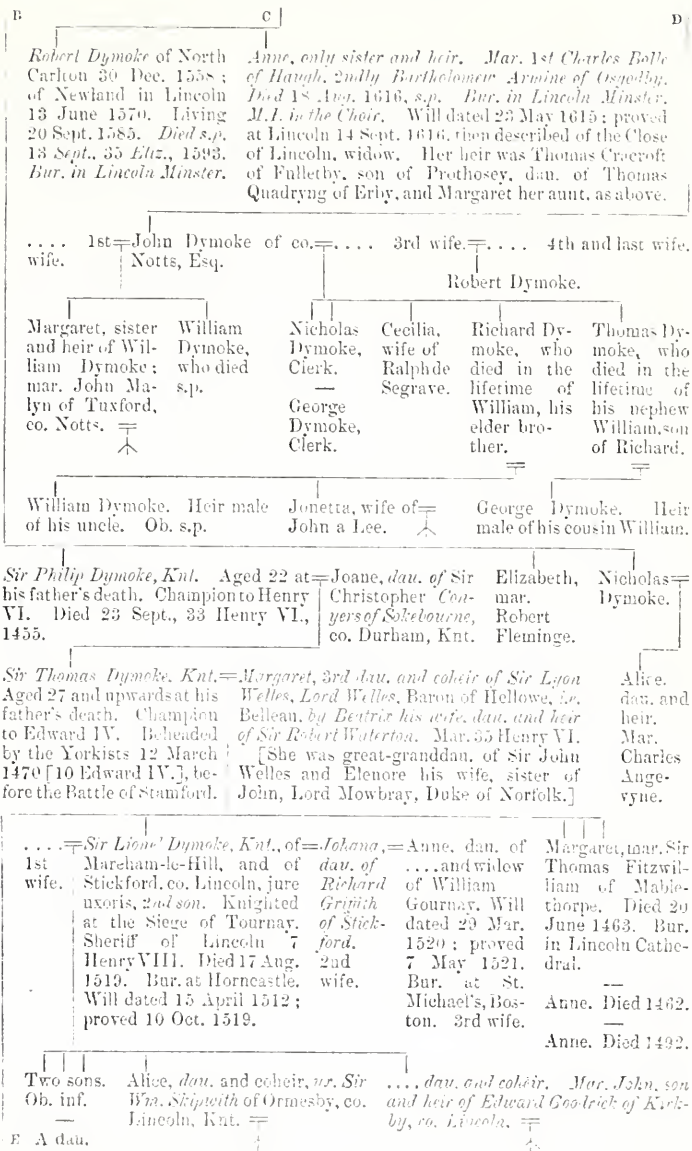 B C D
Robert Dymoke of North
Carlton 30 Dec. 1558 ;
of Newland in Lincoln
13 June 1570. Living
20 Sept. 1585. Died s.p.
13 Sept., 35 Eliz., 1593.
Bur. in Lincoln Minster.
Anne, only sister and heir. Mar. 1st Charles Bolle
of Haugh, 2ndly Bartholomew Armine of Osgodby.
Died 18 Aug. 1616, s.p. Bur. in Lincoln Minster.
M.I. in the Choir. Will dated 23 May 1615 ; proved
at Lincoln 14 Sept. 1616, then described of the Close
of Lincoln, widow. Her heir was Thomas Cracroft
of Fulletby, son of Prothosey, dau. of Thomas
Quadryng of Erby, and Margaret her aunt, as above.
. . . . 1st
wife.
John Dymoke of co.
Notts, Esq.
. . . . 3rd wife.
. . . . 4th and last wife.
Robert Dymoke.
Margaret, sister
and heir of Wil-
liam Dymoke ;
mar. John Ma-
lyn of Tuxford,
co. Notts.
William
Dymoke,
who died
s.p.
Nicholas
Dymoke,
Clerk.
—
George
Dymoke,
Clerk.
Cecilia,
wife of
Ralph de
Segrave.
Richard Dy-
moke, who
died in the
lifetime of
William, his
elder bro-
ther.
Thomas Dy-
moke, who
died in the
lifetime of
his nephew
William, son
of Richard.
William Dymoke. Heir male
of his uncle. Ob. s.p.
Jonetta, wife of
John a Lee.
George Dymoke. Heir
male of his cousin William.
Sir Philip Dymoke, Knt. Aged 22 at
his father's death. Champion to Henry
VI. Died 23 Sept., 33 Henry VI.,
1455.
Joane, dau. of Sir
Christopher Con-
yers of Sokebourne,
co. Durham, Knt.
Elizabeth,
mar.
Robert
Fleminge.
Nicholas
Dymoke.
Sir Thomas Dymoke, Knt.
Aged 27 and upwards at his
father's death. Champion
to Edward IV. Beheaded
by the Yorkists 12 March
1470 [10 Edward IV.], be-
fore the Battle of Stamford.
Margaret, 3rd dau. and coheir of Sir Lyon
Welles, Lord Welles, Baron of Hellowe, i.e.
Belleau, by Beatrix his wife, dau. and heir
of Sir Robert Waterton. Mar. 35 Henry VI.
[She was great-granddau. of Sir John
Welles and Elenore his wife, sister of
John, Lord Mowbray, Duke of Norfolk.]
Alice,
dau. and
heir.
Mar.
Charles
Ange-
vyne.
. . . .
1st
wife.
Sir Lione' Dymoke, Knt., of
Mareham-le-Hill, and of
Stickford, co. Lincoln, jure
uxoris, 2nd son. Knighted
at the Siege of Tournay.
Sheriff of Lincoln 7
Henry VIII. Died 17 Aug.
1519. Bur. at Horncastle.
Will dated 15 April 1512 ;
proved 10 Oct. 1519.
Johana,
dau. of
Richard
Griffith
of Stick-
ford.
2nd
wife.
Anne, dau. of
. . . . and widow
of William
Gournay. Will
dated 29 Mar.
1520 ; proved
7 May 1521.
Bur. at St.
Michael's, Bos-
ton. 3rd wife.
Margaret, mar. Sir
Thomas Fitzwil-
liam of Mable-
thorpe. Died 20
June 1463. Bur.
in Lincoln Cathe-
dral.
—
Anne. Died 1462.
—
Anne. Died 1492.
Two sons.
Ob. inf.
—
E A dau.
Alice, dau. and coheir, ux. Sir
Wm. Skipwith of Ormesby, co.
Lincoln, Knt.
. . . . dau. and coheir. Mar. John, son
and heir of Edward Goodrick of Kirk-
by, co. Lincoln.